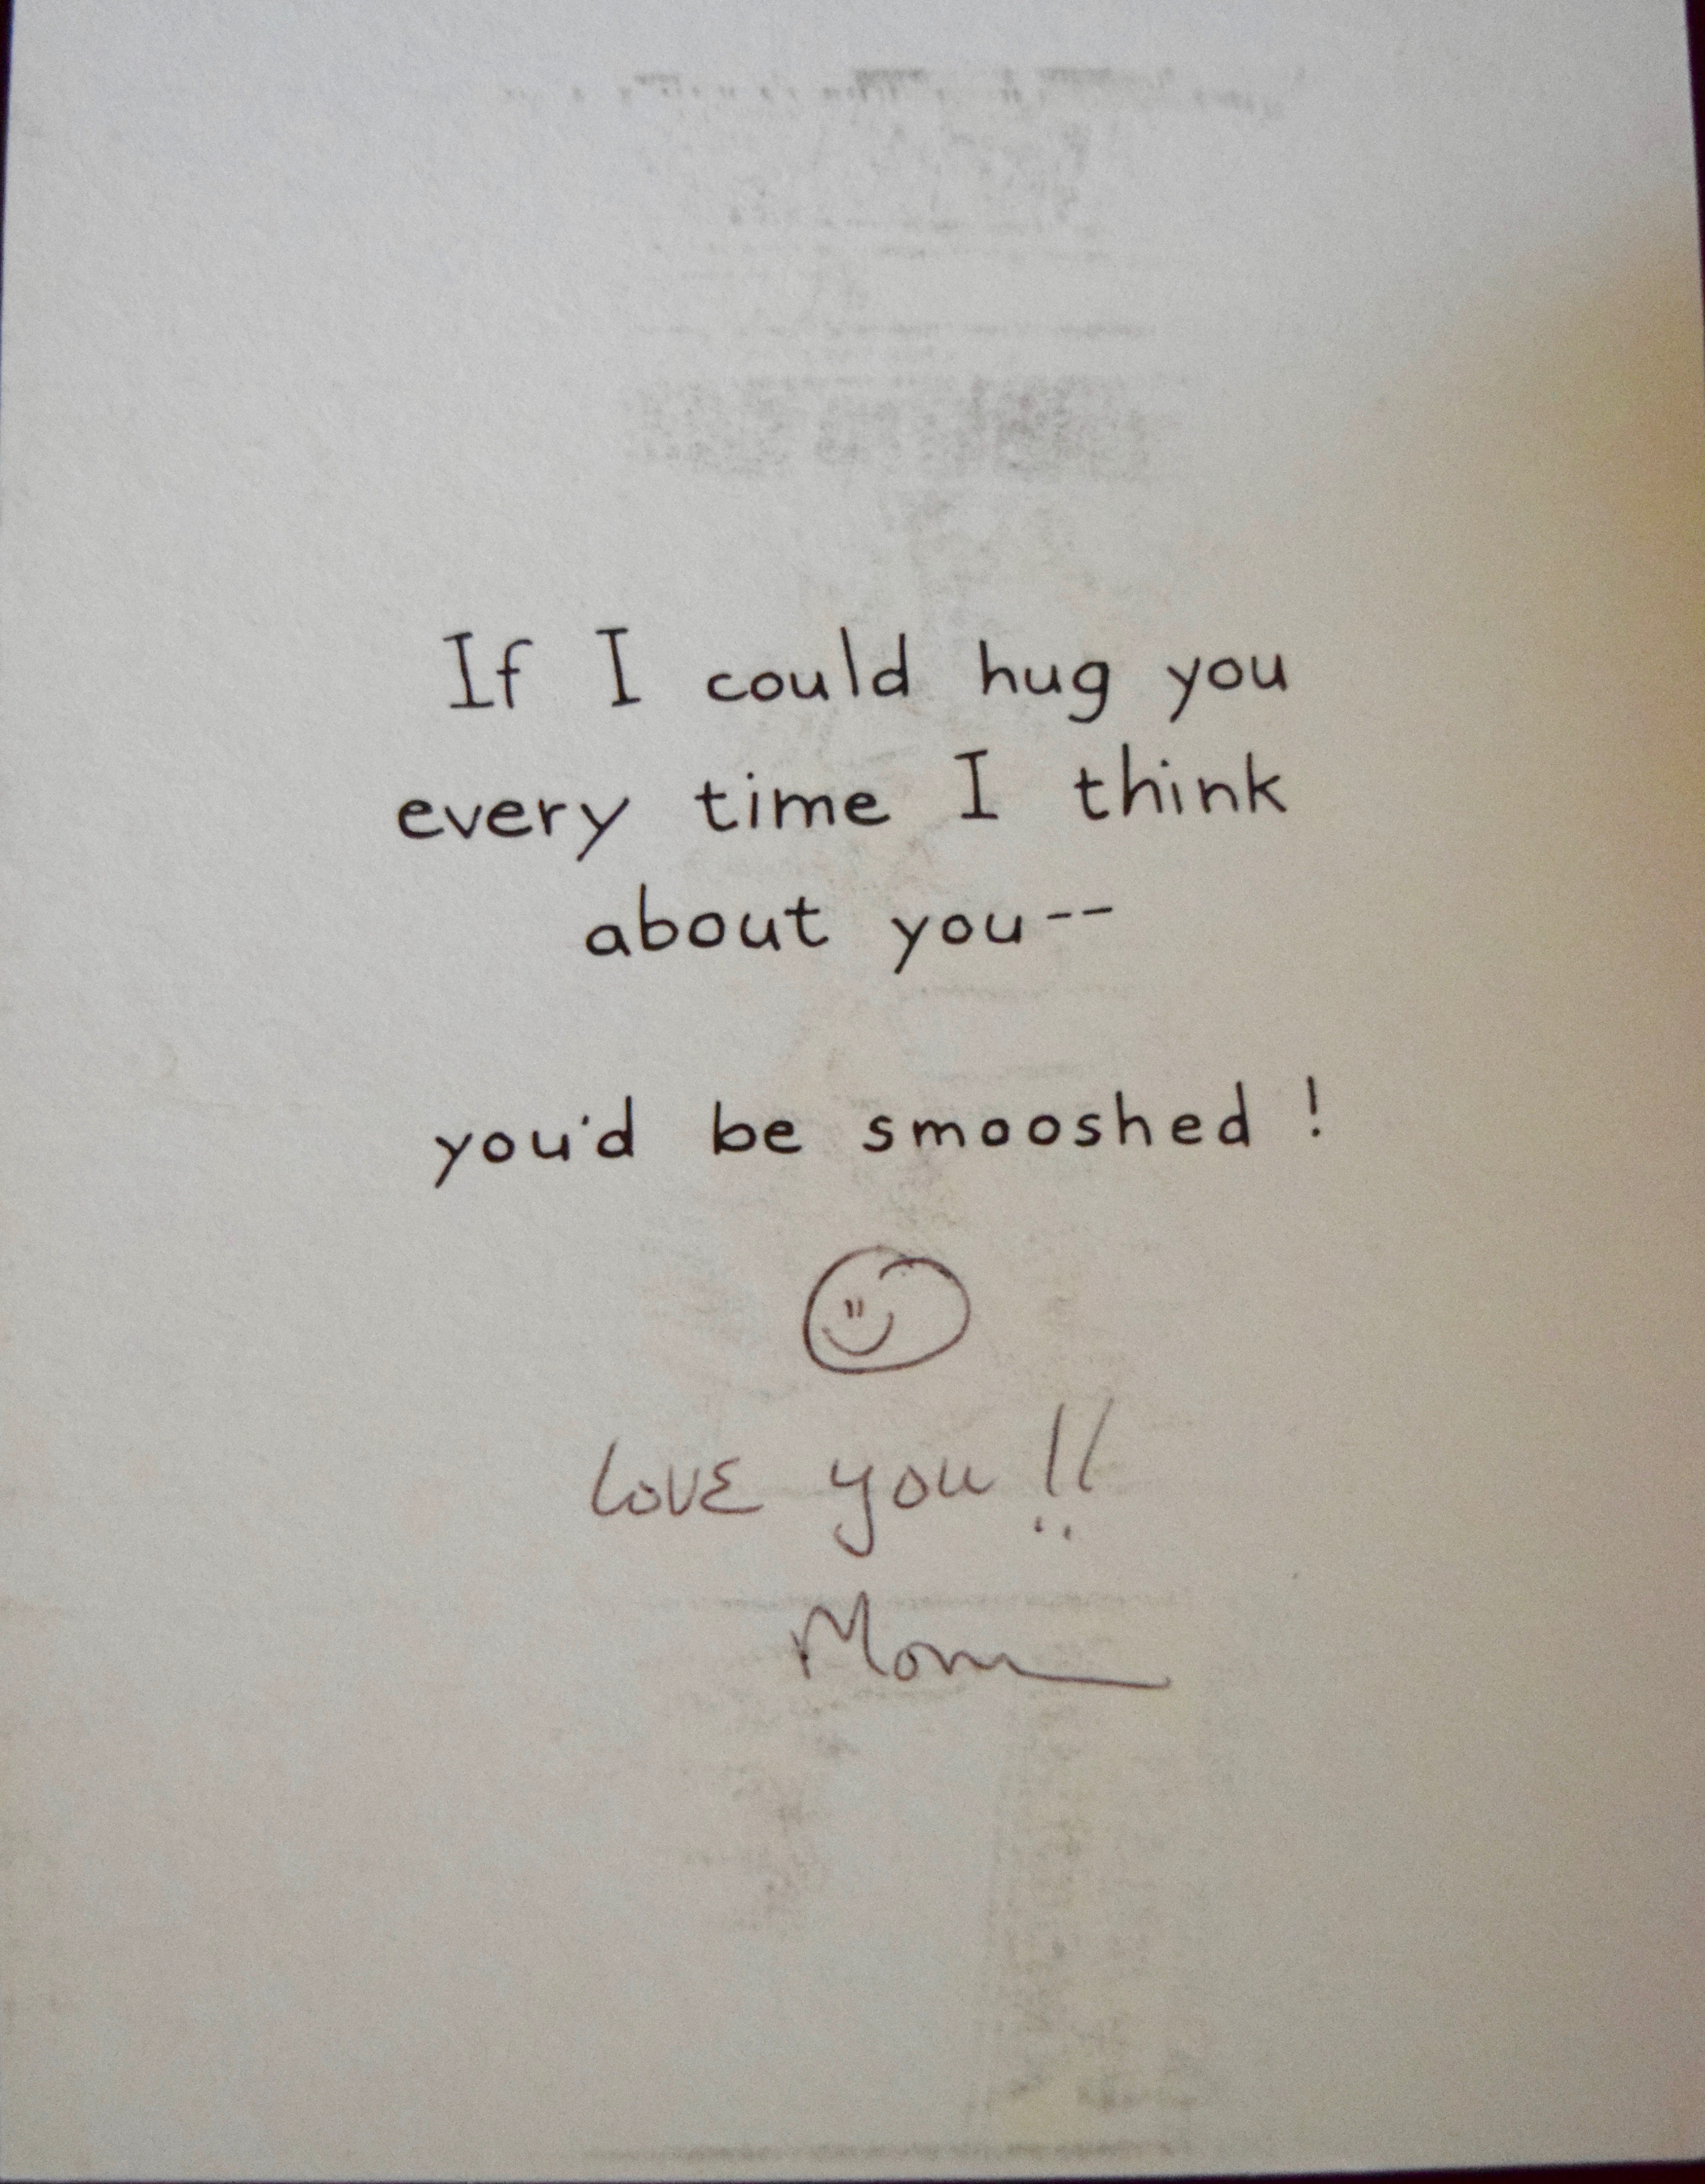 If I could hug you
every time I think
about you--
you'd be smooshed!
Love you!!
Mom